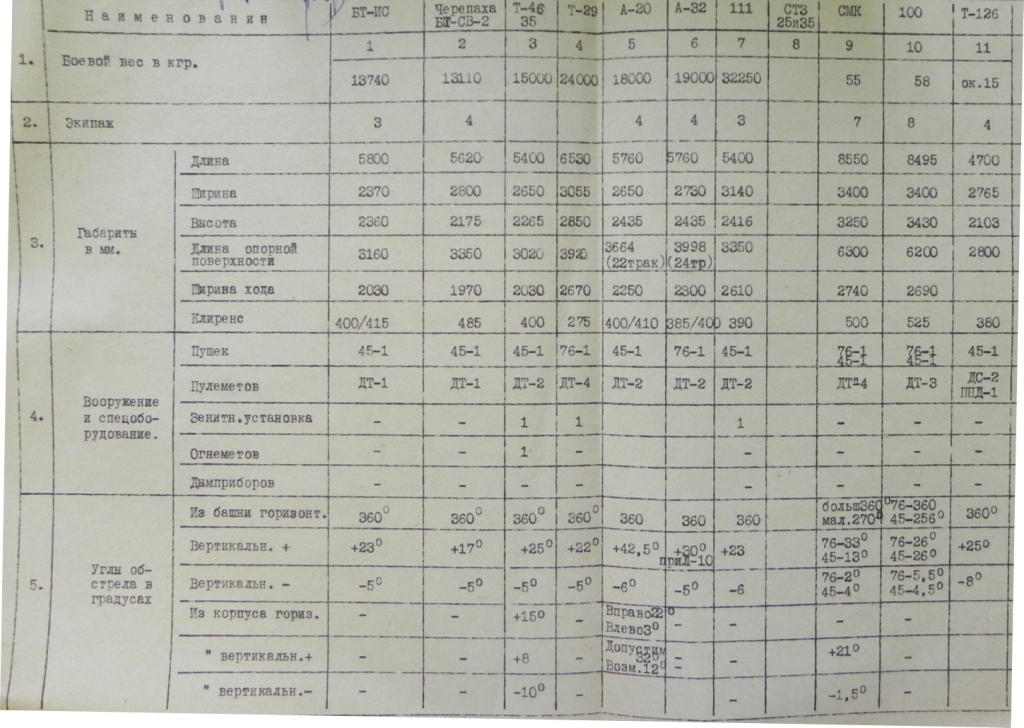 Наименовании БТ-ИС Черепаха БТ-СВ-2 Т-46 35 Т-29 А-20 А-32 111 СТЗ 25и35 СМК 100 Т-126
1 2 3 4 5 6 7 8 9 10 11
1. Боевой вес в кгр. 13740 13110 15000 24000 18000 19000 32250 55 58 ок.15
2. Экипаж 3 4 4 4 3 7 8 4
3. Габариты в мм.
Длина 5800 5620 5400 6530 5760 5760 5400 8550 8495 4700
Ширина 2370 2800 2650 3055 2650 2730 3140 3400 3400 2765
Высота 2360 2175 2265 2850 2435 2435 2416 3250 3430 2103
Длина опорной поверхности 3160 3350 3020 3920 3664 (22трак) 3998 (24тр) 3350 6300 6200 2800
Ширина хода 2030 1970 2030 2670 2250 2300 2610 2740 2690
Клиренс 400/415 485 400 275 400/410 385/400 390 500 525 380
4. Вооружение и спецобо-рудование.
Пушек 45-1 45-1 45-1 76-1 45-1 76-1 45-1 76-1 45-1 76-1 45-1 45-1
Пулеметов ДТ-1 ДТ-1 ДТ-2 ДТ-4 ДТ-2 ДТ-2 ДТ-2 ДТ"4 ДТ-3 ДС-2 ППД-1
Зенитн.установка - - 1 1 1 - - -
Огнеметов - - 1 - - - -
Дымприборов - - - - - - - -
5. Углы об-стрела в градусах
Из башни горизонт. 360° 360° 360° 360° 360 360 360 больш360° мал.270° 76-360 45-256° 360°
Вертикальн. + +23° +17° +25° +22° +42,5° +30° приЛ-10 +23 76-33° 45-13° 76-26° 45-26° +25°
Вертикальн. - -5° -5° -5° -5° -6° -5° -6 76-2° 45-4° 76-5,5° 45-4,5° -8°
Из корпуса гориз. - - +15° - Вправо22° Влево3° - - - -
" вертикальн.+ - - +8 - Допустим 32° Возм.12° - - - +21° -
" вертикальн.- - - -10° - - -1,5° -